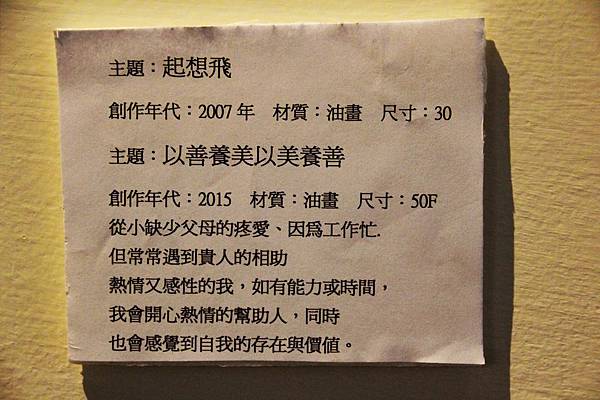 主題：起想飛
創作年代：2007 年　材質：油畫　尺寸：30
主題：以善養美以美養善
創作年代：2015　材質：油畫　尺寸：50F
從小缺少父母的疼愛、因爲工作忙.
但常常遇到貴人的相助
熱情又感性的我，如有能力或時間，
我會開心熱情的幫助人，同時
也會感覺到自我的存在與價值。